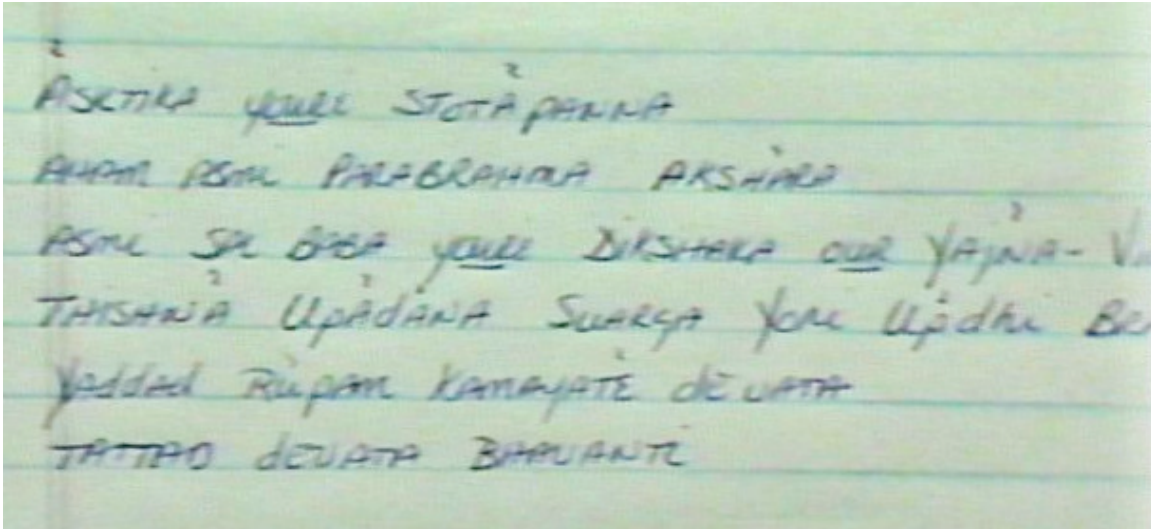 ASKTIKA youre STOTÂPANNA
AHAM ASMI PARABRAHMA AKSHARA
ASMI SRI BABA youre DIKSHAKA our YAJNA-
THISHNA Upâdâna SUARGA Yoni Upâdhi
Yaddad Rupam Kamayate dEVATA
TATTAD dEVATA BHAVANTI